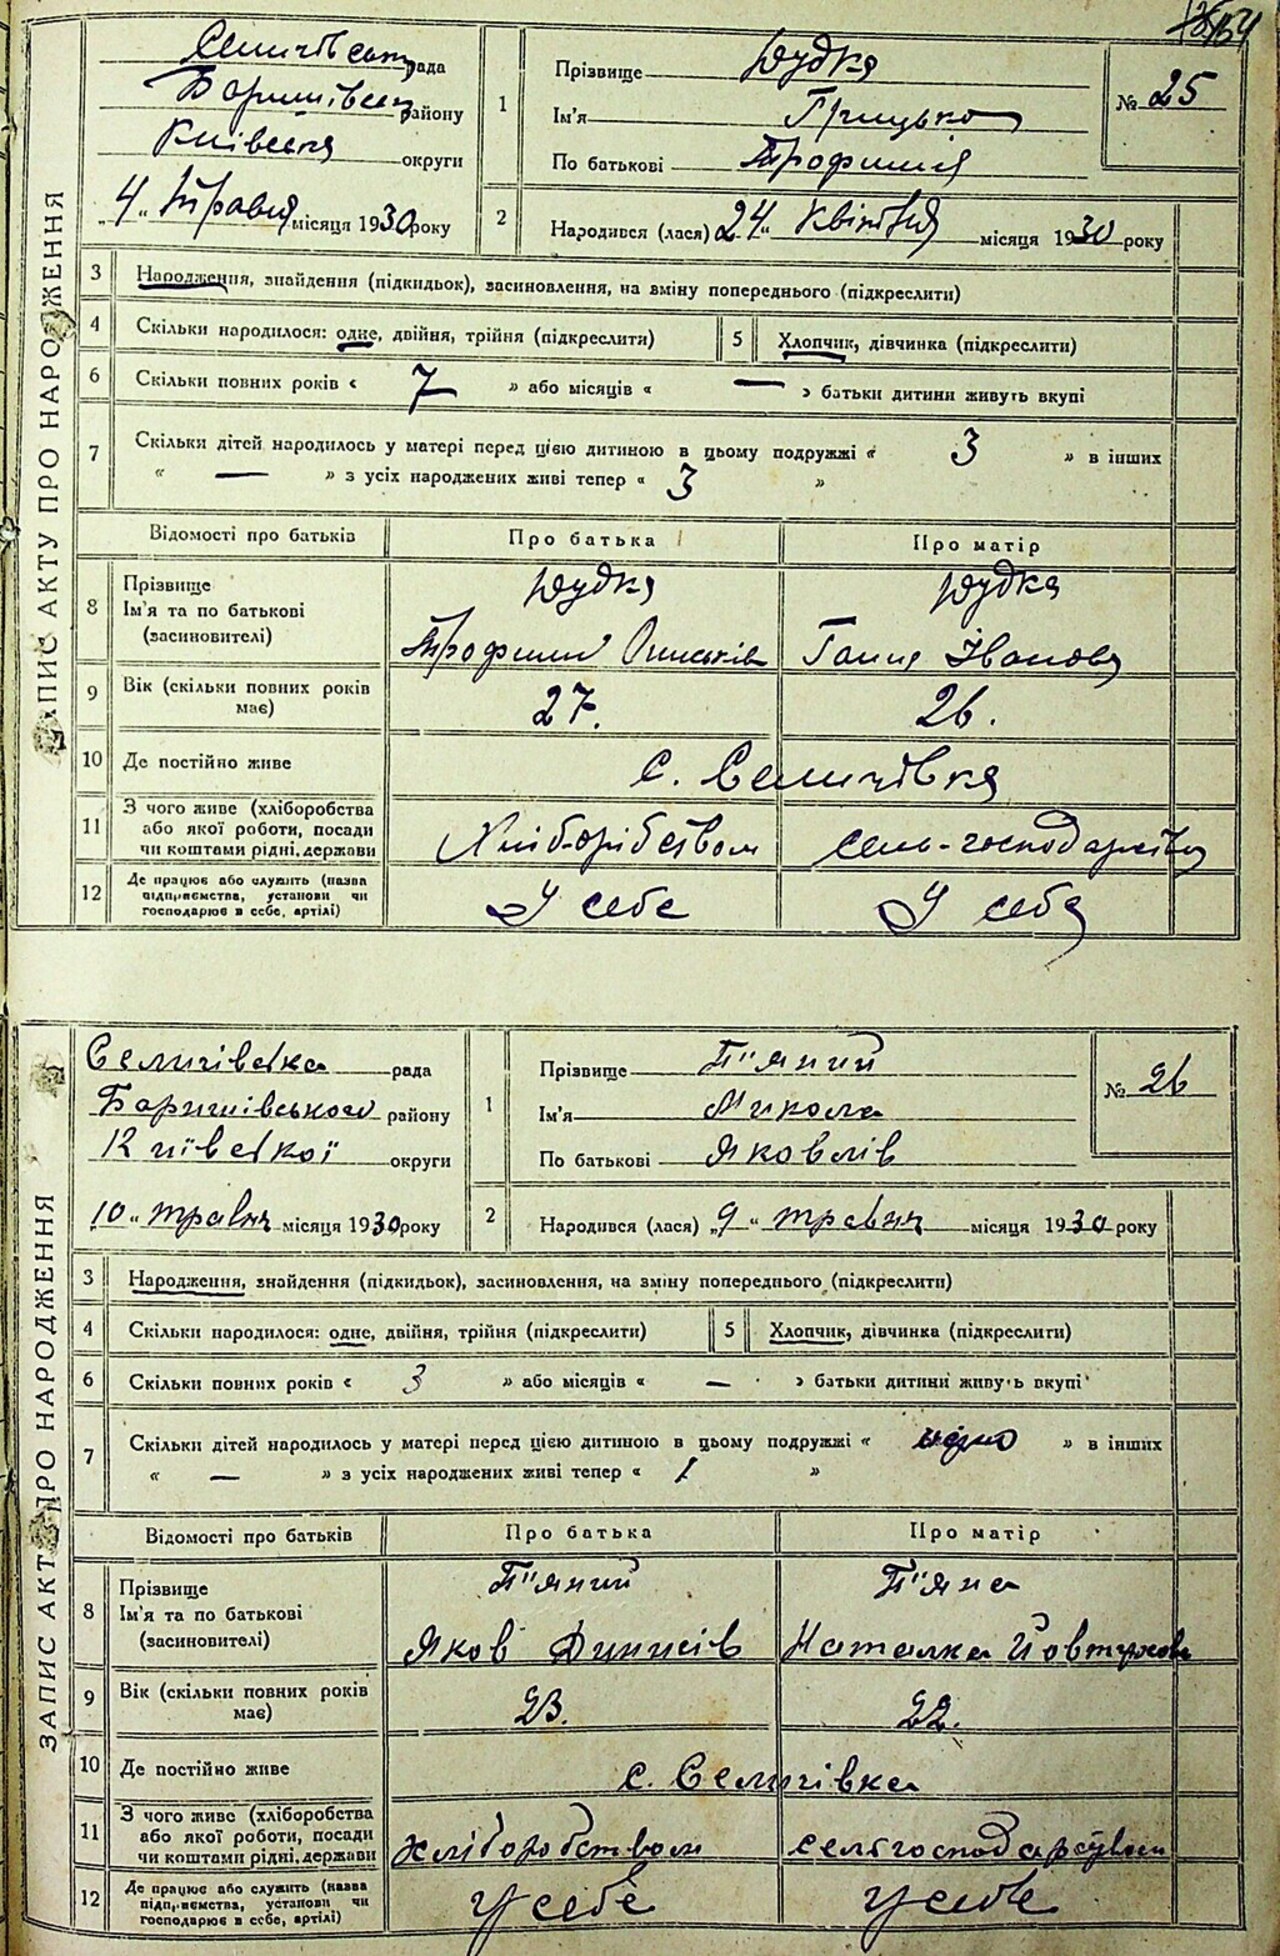 154
ЗАПИС АКТУ ПРО НАРОДЖЕННЯ
Селичівська рада
Баришівськ району
Київська округи
„4“ Травня місяця 1930 року
1
Прізвище Дудка
Ім'я Грицько
По батькові Трофимів
№ 25
2
Народився (лася) „24“ Квітня місяця 1930 року
3 Народження, знайдення (підкидьок), засиновлення, на зміну попереднього (підкреслити)
4 Скільки народилося: одне, двійня, трійня (підкреслити) 5 Хлопчик, дівчинка (підкреслити)
6 Скільки повних років « 7 » або місяців « — » батьки дитини живуть вкупі
7 Скільки дітей народилось у матері перед цією дитиною в цьому подружжі « 3 » в інших
« — » з усіх народжених живі тепер « 3 »
Відомості про батьків Про батька Про матір
8 Прізвище Дудка Дудка
Ім'я та по батькові
(засиновителі) Трофим Ганна Іванова
9 Вік (скільки повних років має) 27. 26.
10 Де постійно живе с. Селичівка
11 З чого живе (хліборобства
або якої роботи, посади
чи коштами рідні, держави Хліборобством сель-господарством
12 Де працює або служить (назва
підприємства, установи чи
господарює в себе, артілі) У себе У себе
ЗАПИС АКТУ ПРО НАРОДЖЕННЯ
Селичівська рада
Баришівського району
Київської округи
10 „ травня місяця 1930 року
1
Прізвище П"яний
Ім'я Микола
По батькові Яковлів
№ 26
2
Народився (лася) „9“ травня місяця 1930 року
3 Народження, знайдення (підкидьок), засиновлення, на зміну попереднього (підкреслити)
4 Скільки народилося: одне, двійня, трійня (підкреслити) 5 Хлопчик, дівчинка (підкреслити)
6 Скільки повних років « 3 » або місяців « — » батьки дитини живуть вкупі
7 Скільки дітей народилось у матері перед цією дитиною в цьому подружжі « одно » в інших
« — » з усіх народжених живі тепер « 1 »
Відомості про батьків Про батька Про матір
8 Прізвище П"яний П"яна
Ім'я та по батькові
(засиновителі) Яков Динисів Наталка Йовтухова
9 Вік (скільки повних років має) 23. 22.
10 Де постійно живе с. Селичівка
11 З чого живе (хліборобства
або якої роботи, посади
чи коштами рідні, держави хліборобством сельгосподарством
12 Де працює або служить (назва
підприємства, установи чи
господарює в себе, артілі) У себе У себе